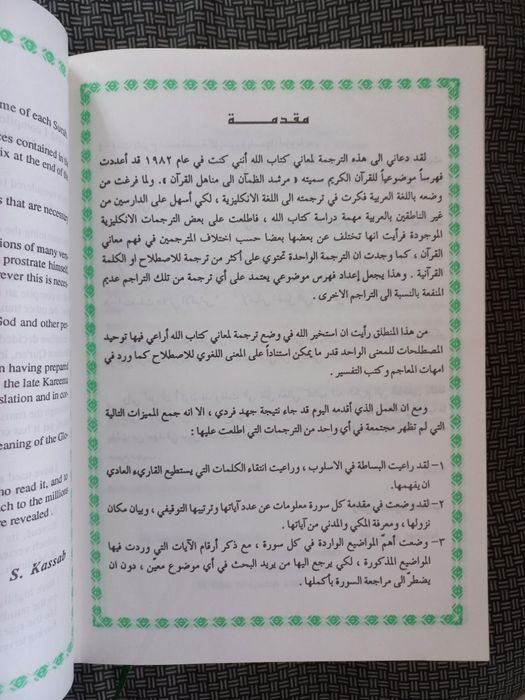 me of each Surah
ces contained in the
ix at the end of the
s that are necessary
ions of many ver-
prostrate himself,
ever this is neces-
God and other per-
n having prepared
the late Kareema
slation and in cor-
eaning of the Glo-
ho read it, and to
ch to the millions
re revealed .
S. Kassab
مقدمــــة
لقد دعاني الى هذه الترجمة لمعاني كتاب الله أنني كنت في عام ١٩٨٢ قد أعددت
فهرساً موضوعياً للقرآن الكريم سميته « مرشد الظمآن الى مناهل القرآن ». ولما فرغت من
وضعه باللغة العربية فكرت في ترجمته الى اللغة الانكليزية ، لكي أسهل على الدارسين من
غير الناطقين بالعربية مهمة دراسة كتاب الله ، فاطلعت على بعض الترجمات الانكليزية
الموجودة فرأيت انها تختلف عن بعضها بعضا حسب اختلاف المترجمين في فهم معاني
القرآن ، كما وجدت ان الترجمة الواحدة تحتوي على أكثر من ترجمة للاصطلاح او الكلمة
القرآنية . وهذا يجعل إعداد فهرس موضوعي يعتمد على أي ترجمة من تلك التراجم عديم
المنفعة بالنسبة الى التراجم الاخرى .
من هذا المنطلق رأيت ان استخير الله في وضع ترجمة لمعاني كتاب الله أراعي فيها توحيد
المصطلحات للمعنى الواحد قدر ما يمكن استناداً على المعنى اللغوي للاصطلاح كما ورد في
امهات المعاجم وكتب التفسير .
ومع ان العمل الذي أقدمه اليوم قد جاء نتيجة جهد فردي ، الا انه جمع المميزات التالية
التي لم تظهر مجتمعة في أي واحد من الترجمات التي اطلعت عليها :
١– لقد راعيت البساطة في الاسلوب ، وراعيت انتقاء الكلمات التي يستطيع القاريء العادي
ان يفهمها.
٢– لقد وضعت في مقدمة كل سورة معلومات عن عدد آياتها وترتيبها التوقيفي ، وبيان مكان
نزولها ، ومعرفة المكي والمدني من آياتها .
٣– وضعت أهمّ المواضيع الواردة في كل سورة ، مع ذكر أرقام الآيات التي وردت فيها
المواضيع المذكورة ، لكي يرجع اليها من يريد البحث في أي موضوع معين ، دون ان
يضطرّ الى مراجعة السورة بأكملها .